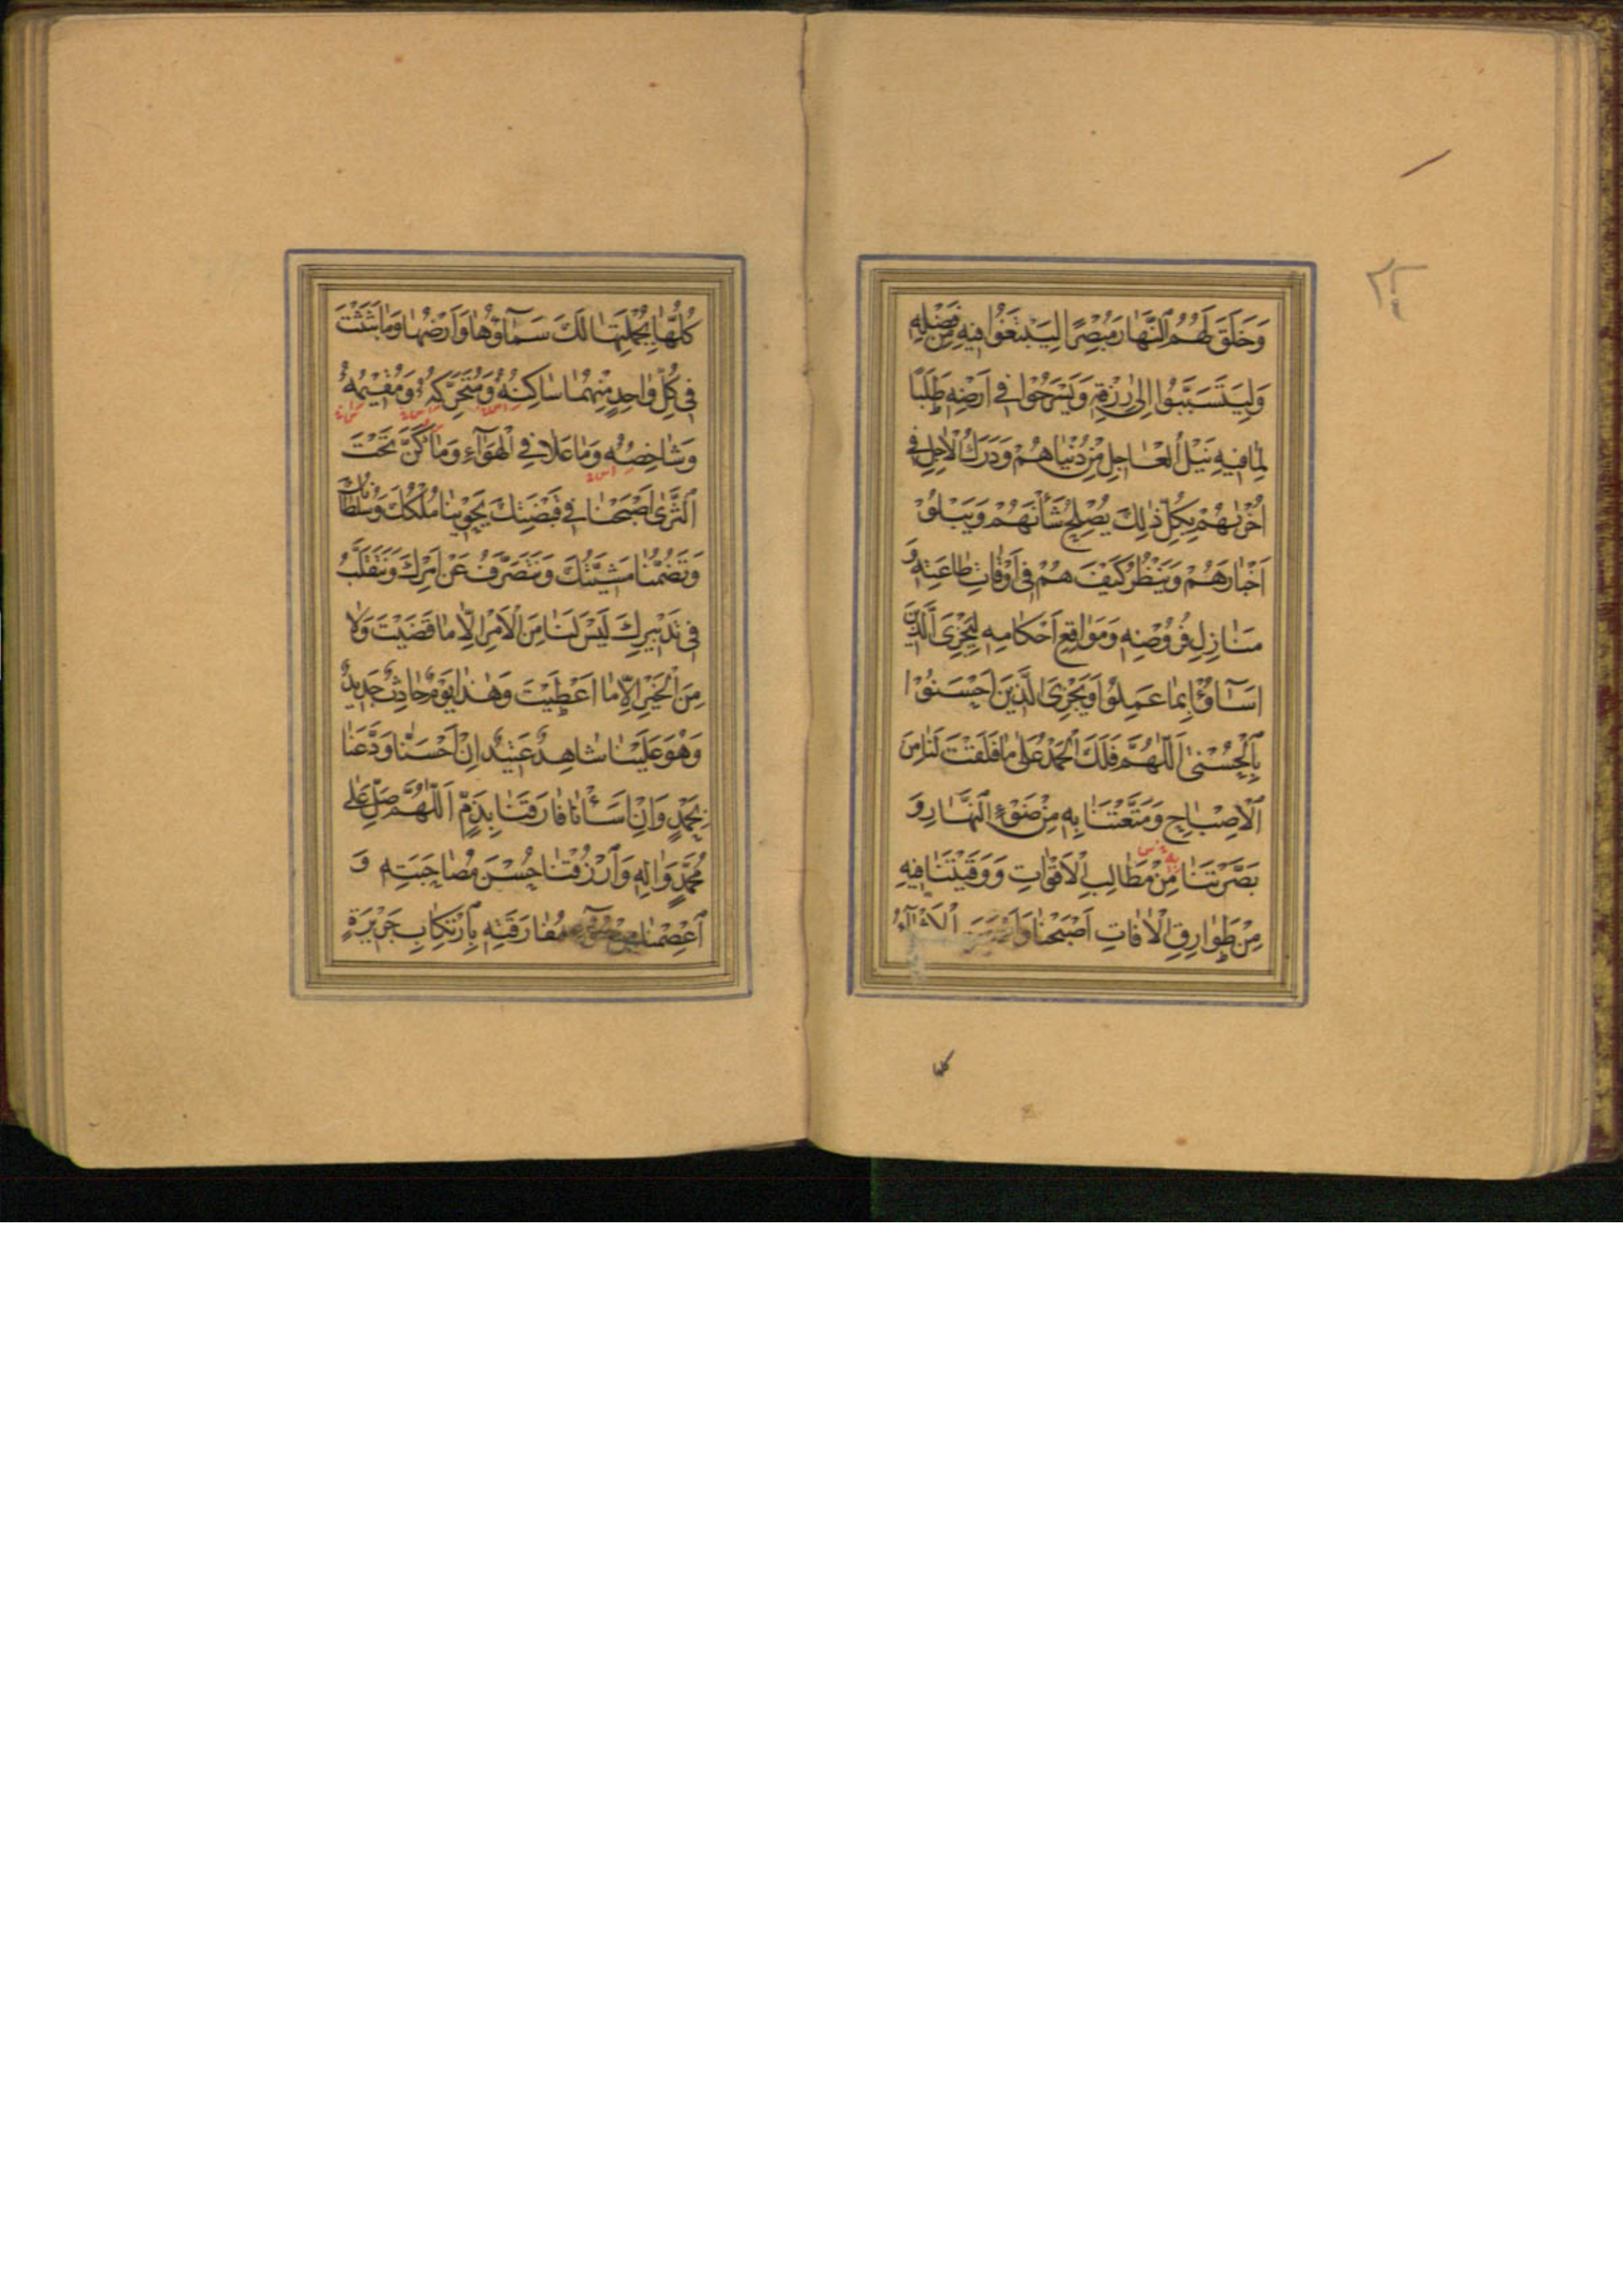 ٢٤
وَخَلَقَ لَهُمُ النَّهَارَ مُبْصِرًا لِيَبْتَغُوا فِيهِ مِنْ فَضْلِهِ
وَلِيَتَسَبَّبُوا اِلىٰ رِزْقِهِ وَيَسْرَحُوا فِي اَرْضِهِ طَلَبًا
لِمَا فِيهِ نَيْلُ الْعَاجِلِ مِنْ دُنْيَاهُمْ وَدَرَكُ الْاٰجِلِ فِي
اُخْرٰيهُمْ بِكُلِّ ذٰلِكَ يُصْلِحُ شَأْنَهُمْ وَيَبْلُوْ
اَخْبَارَهُمْ وَيَنْظُرُ كَيْفَ هُمْ فِي اَوْقَاتِ طَاعَتِهِ وَ
مَنَازِلِ فُرُوضِهِ وَمَوَاقِعِ اَحْكَامِهِ لِيَجْزِيَ الَّذِينَ
اَسَآؤُا بِمَا عَمِلُوا وَيَجْزِيَ الَّذِينَ اَحْسَنُوْا
بِالْحُسْنىٰ اَللّٰهُمَّ فَلَكَ الْحَمْدُ عَلىٰ مَا فَلَقْتَ لَنَا مِنَ
الْاِصْبَاحِ وَمَتَّعْتَنَا بِهِ مِنْ ضَوْءِ النَّهَارِ وَ
بَصَّرْتَنَا مِنْ مَطَالِبِ الْاَقْوَاتِ وَوَقَيْتَنَا فِيهِ
مِنْ طَوَارِقِ الْاٰفَاتِ اَصْبَحْنَا وَاَصْبَحَتِ الْاَشْيَآءُ
كُلُّهَا بِجُمْلَتِهَا لَكَ سَمَآؤُهَا وَاَرْضُهَا وَمَا بَثَثْتَ
فِي كُلِّ وَاحِدٍ مِنْهُمَا سَاكِنُهُ وَمُتَحَرِّكُهُ وَمُقِيمُهُ
وَشَاخِصُهُ وَمَا عَلَا فِي الْهَوَآءِ وَمَا كَنَّ تَحْتَ
الثَّرىٰ اَصْبَحْنَا فِي قَبْضَتِكَ يَحْوِينَا مُلْكُكَ وَسُلْطَانُكَ
وَتَضُمُّنَا مَشِيَّتُكَ وَنَتَصَرَّفُ عَنْ اَمْرِكَ وَنَتَقَلَّبُ
فِي تَدْبِيرِكَ لَيْسَ لَنَا مِنَ الْاَمْرِ اِلَّا مَا قَضَيْتَ وَلَا
مِنَ الْخَيْرِ اِلَّا مَا اَعْطَيْتَ وَهٰذَا يَوْمٌ حَادِثٌ جَدِيدٌ
وَهُوَ عَلَيْنَا شَاهِدٌ عَتِيدٌ اِنْ اَحْسَنَّا وَدَّعَنَا
بِحَمْدٍ وَاِنْ اَسَأْنَا فَارَقَنَا بِذَمٍّ اَللّٰهُمَّ صَلِّ عَلىٰ
مُحَمَّدٍ وَاٰلِهِ وَارْزُقْنَا حُسْنَ مُصَاحَبَتِهِ وَ
اعْصِمْنَا مِنْ سُوٓءِ مُفَارَقَتِهِ بِارْتِكَابِ جَرِيرَةٍ